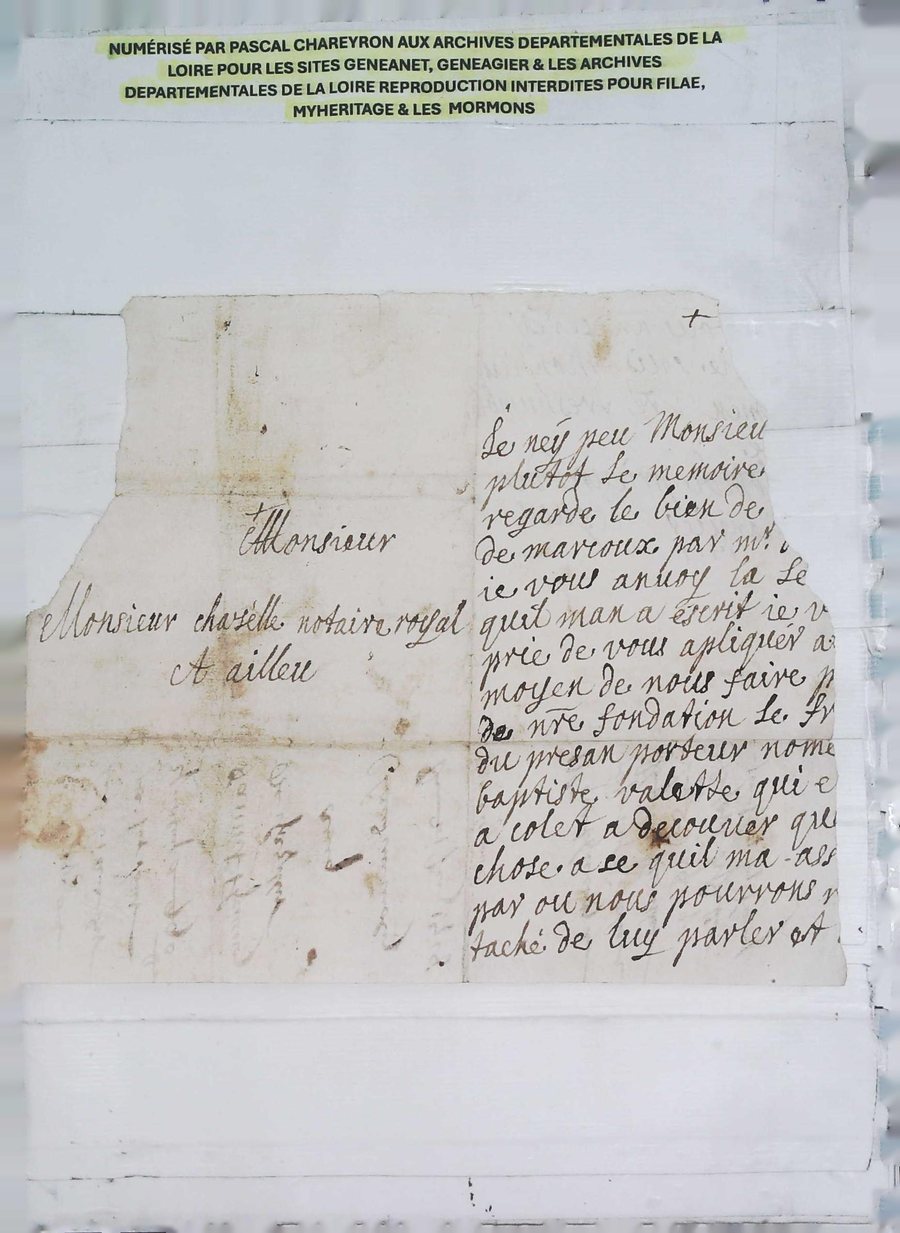 NUMÉRISÉ PAR PASCAL CHAREYRON AUX ARCHIVES DEPARTEMENTALES DE LA
LOIRE POUR LES SITES GENEANET, GENEAGIER & LES ARCHIVES
DEPARTEMENTALES DE LA LOIRE REPRODUCTION INTERDITES POUR FILAE,
MYHERITAGE & LES MORMONS
Monsieur
Monsieur chazelle notaire royal
A ailleu
+
Je neÿ peu Monsieu
plutot Le memoire
regarde le bien de
de marcoux par mr.
ie vous anuoy la Le
quil man a escrit ie v
prie de vous apliquér a
moyen de nous faire p
de nre fondation Le fr
du presan porteur nome
baptiste valette qui e
a colet a decouuer que
chose a se quil ma ass
par ou nous pourrons r
taché de luy parler et